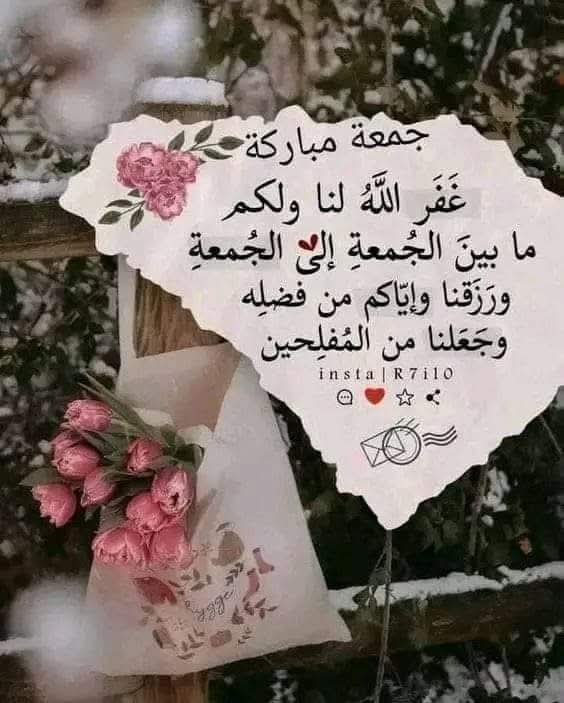 جمعة مباركة
غَفَر اللَّهُ لنا ولكم
ما بينَ الجُمعةِ إلى الجُمعةِ
ورَزَقنا وإيّاكم من فضلِه
وجَعَلنا من المُفلِحين
insta | R7il0
hygge